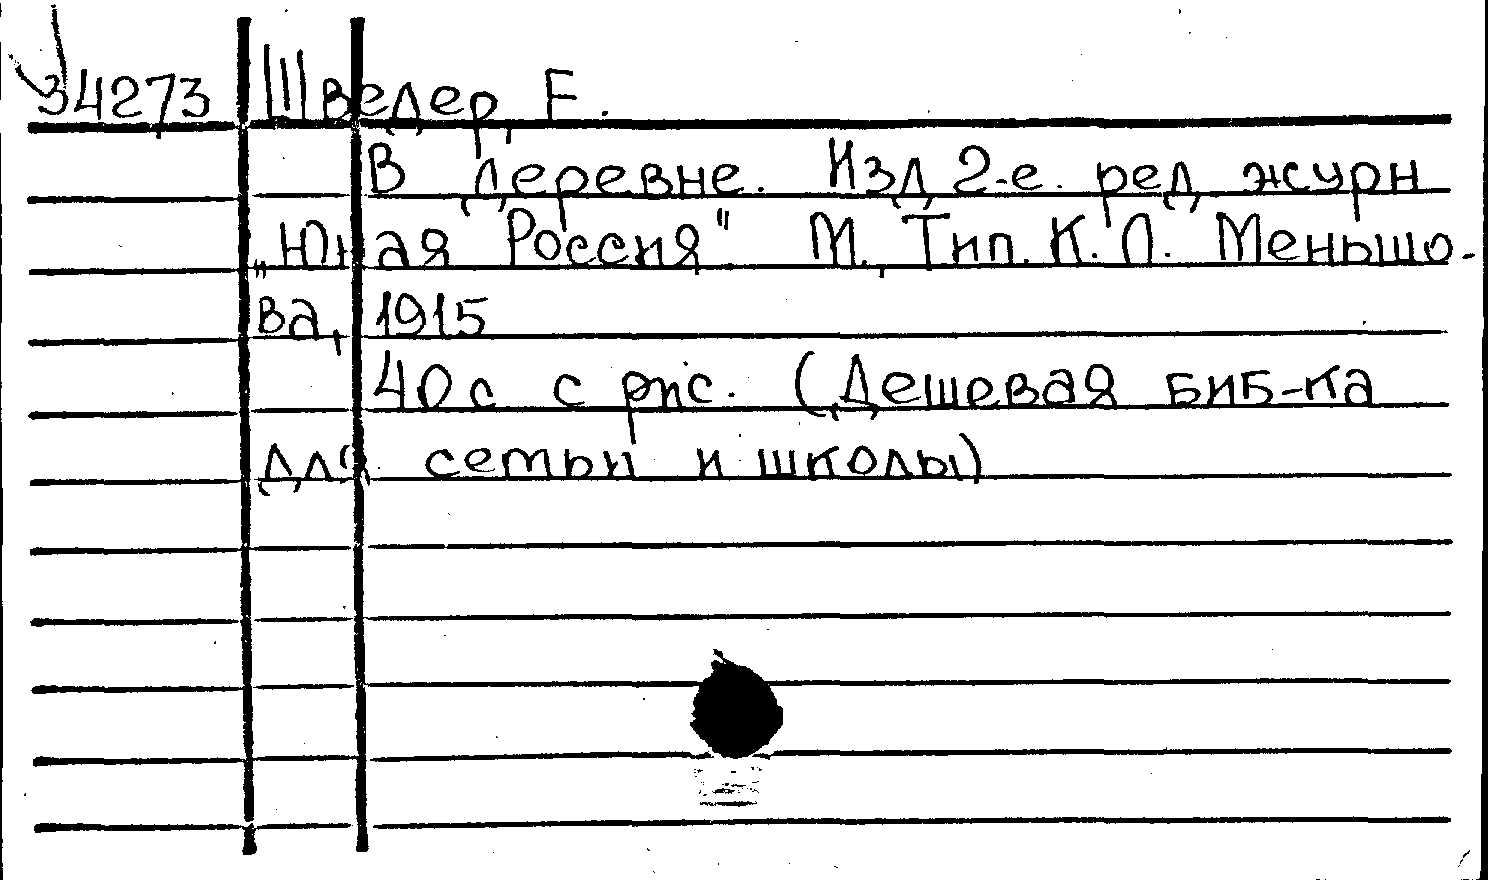 34273 Шведер, Е.
В деревне. Изд 2-е. ред журн
„Юная Россия". М., Тип. К. Л. Меньшо-
ва, 1915
40 с с рис. (Дешевая биб-ка
для семьи и школы)